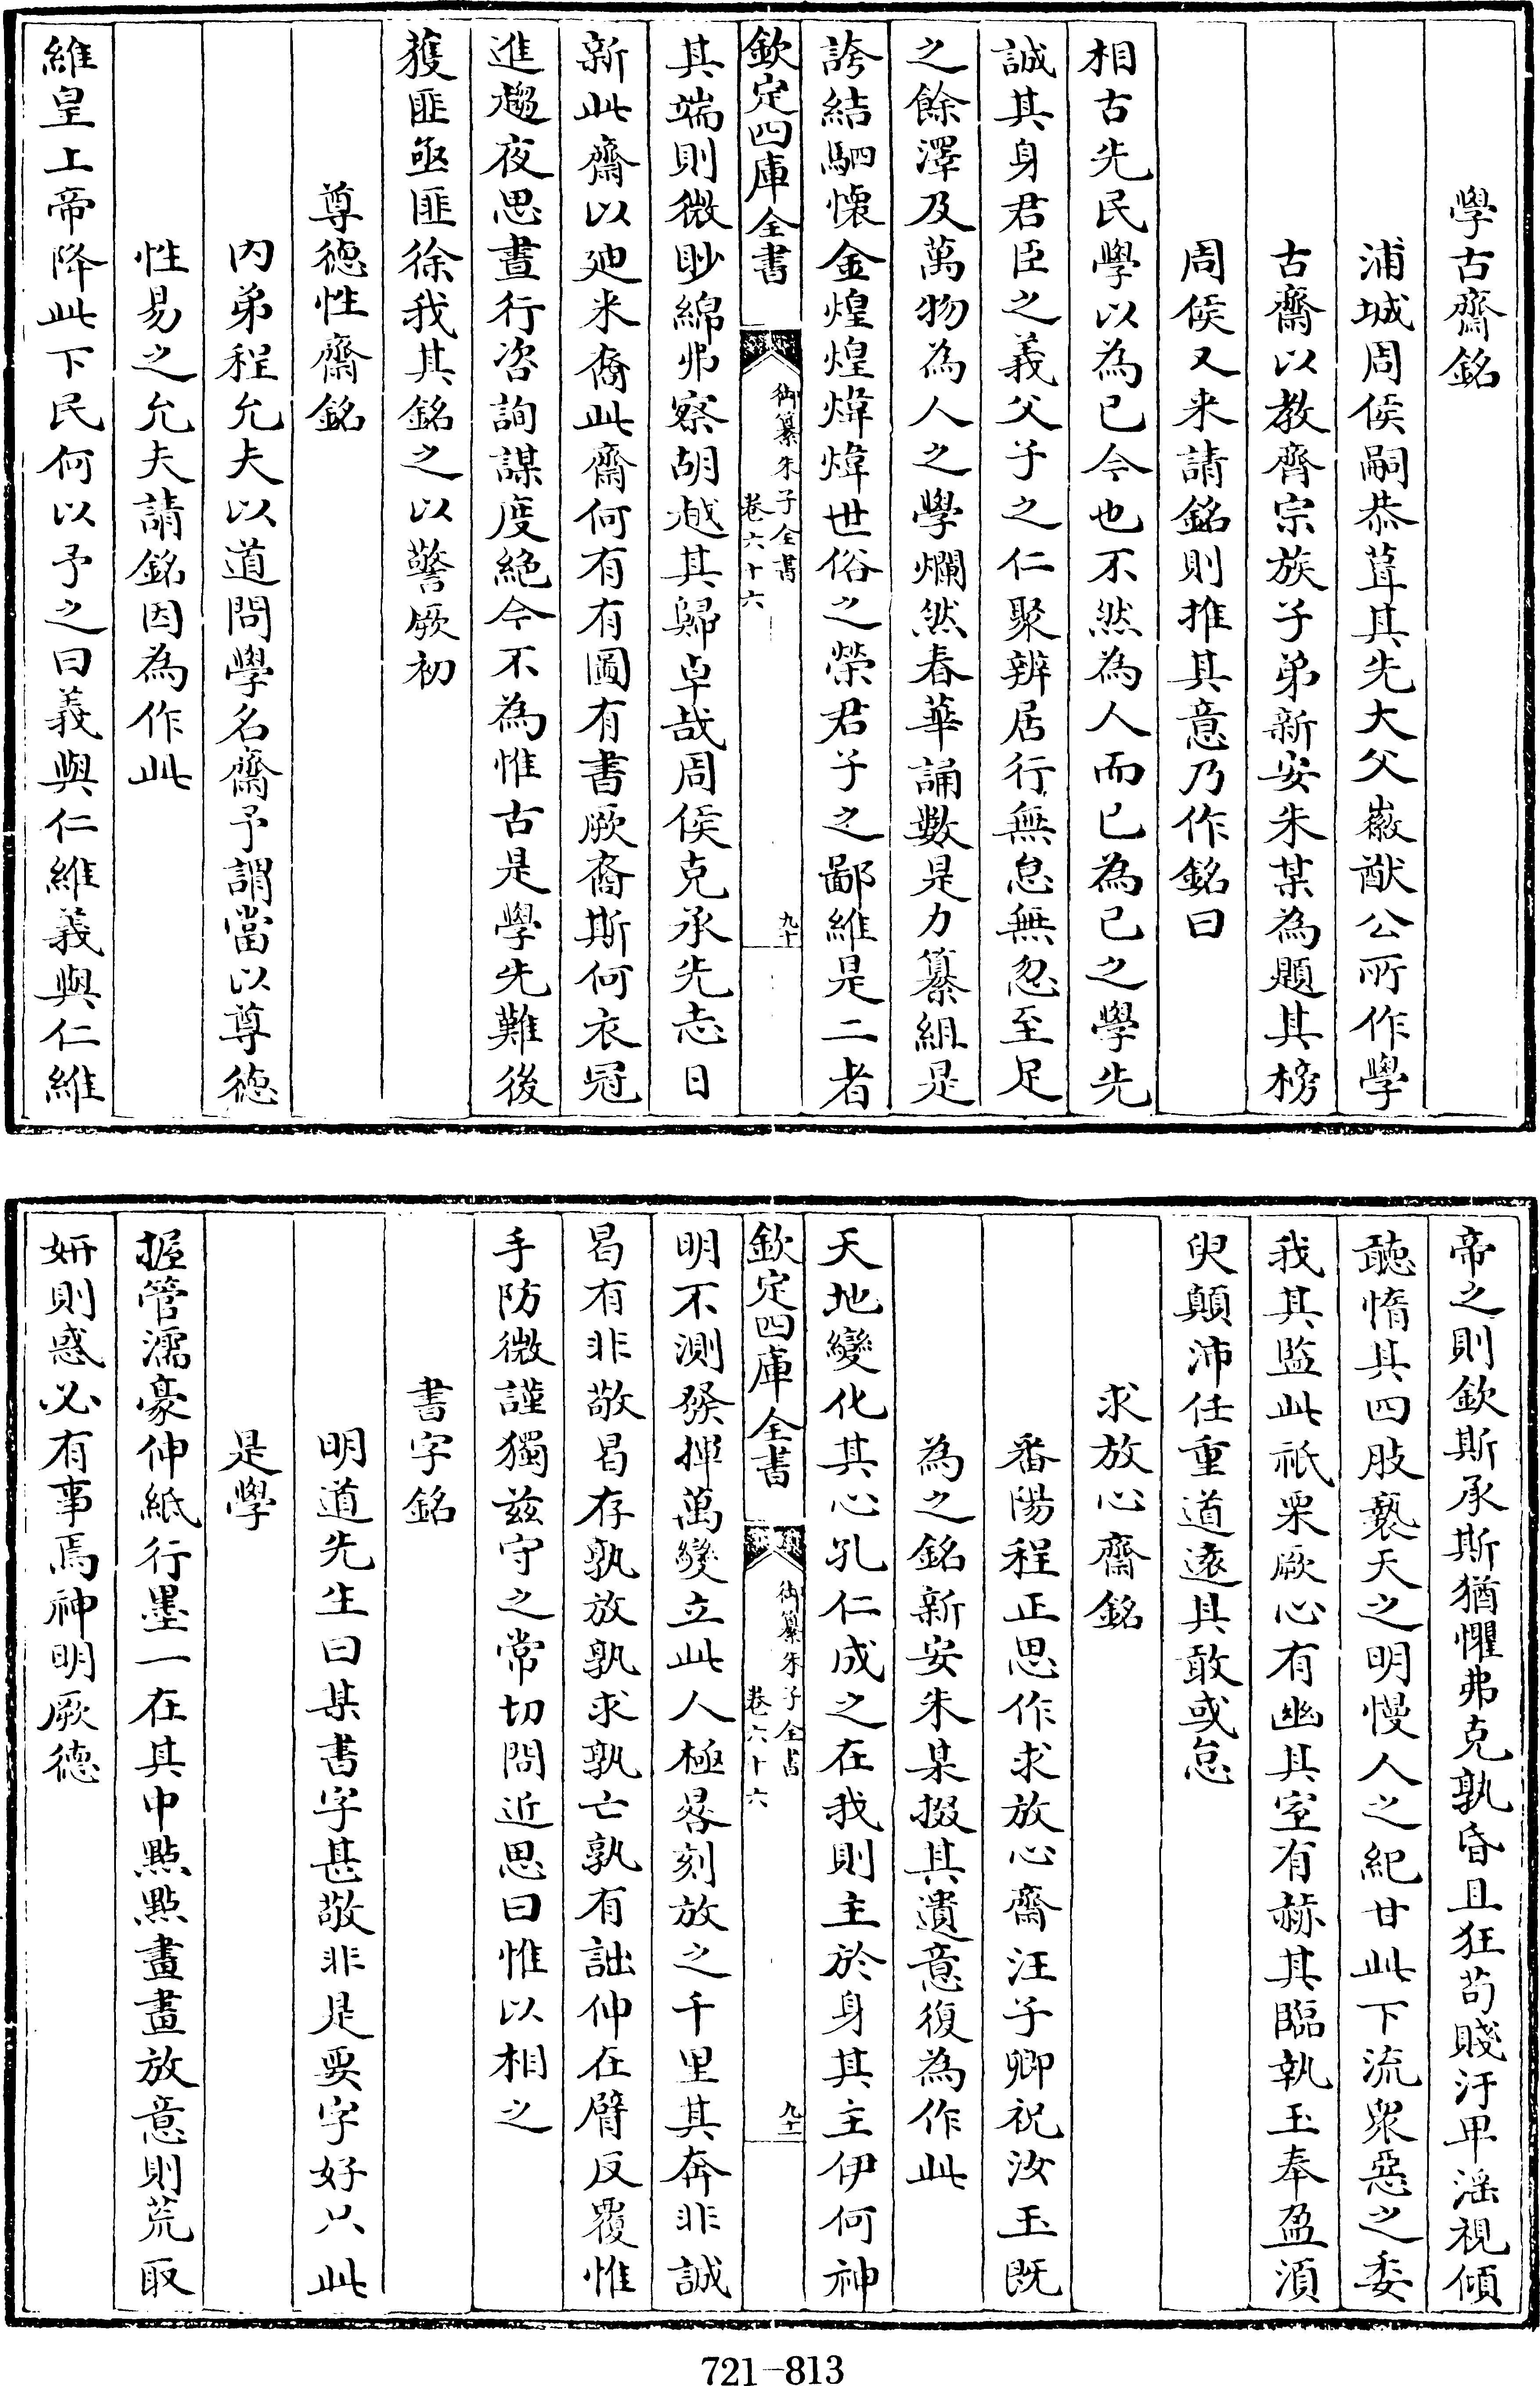 學古齋銘
浦城周侯嗣恭葺其先大父徽猷公所作學
古齋以教齊宗族子弟新安朱某為題其榜
周侯又来請銘則推其意乃作銘曰
相古先民學以為己今也不然為人而已為己之學先
誠其身君臣之義父子之仁聚辨居行無怠無忽至足
之餘澤及萬物為人之學爛然春華誦數是力纂組是
誇結駟懷金煌煌煒煒世俗之榮君子之鄙維是二者
欽定四庫全書
御纂朱子全書
卷六十六
九十
其端則微眇綿弗察胡越其歸卓哉周侯克承先志日
新此齋以廸来裔此齋何有有圖有書厥裔斯何衣冠
進趨夜思晝行咨詢謀度絕今不為惟古是學先難後
獲匪亟匪徐我其銘之以警厥初
尊德性齋銘
内弟程允夫以道問學名齋予謂當以尊德
性易之允夫請銘因為作此
維皇上帝降此下民何以予之曰義與仁維義與仁維
帝之則欽斯承斯猶懼弗克孰昏且狂苟賤汙卑滛視傾
聽惰其四肢褻天之明慢人之紀甘此下流衆惡之委
我其監此祇栗厥心有幽其室有赫其臨執玉奉盈湏
臾顛沛任重道逺其敢或怠
求放心齋銘
番陽程正思作求放心齋汪子卿祝汝玉既
為之銘新安朱某掇其遺意復為作此
天地變化其心孔仁成之在我則主於身其主伊何神
欽定四庫全書
御纂朱子全書
卷六十六
九十一
明不測發揮萬變立此人極晷刻放之千里其奔非誠
曷有非敬曷存孰放孰求孰亡孰有詘伸在臂反覆惟
手防微謹獨兹守之常切問近思曰惟以相之
書字銘
明道先生曰某書字甚敬非是要字好只此
是學
握管濡豪伸紙行墨一在其中點點畫畫放意則荒取
妍則惑必有事焉神明厥德
721-813